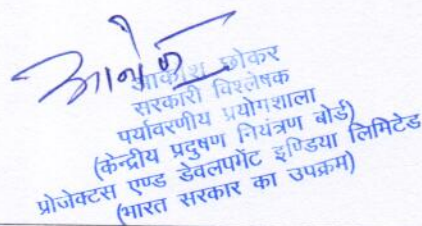 आकाश छोकर
सरकारी विश्लेषक
पर्यावरणीय प्रयोगशाला
(केन्द्रीय प्रदुषण नियंत्रण बोर्ड)
प्रोजेक्टस एण्ड डेवलपमेंट इण्डिया लिमिटेड
(भारत सरकार का उपक्रम)